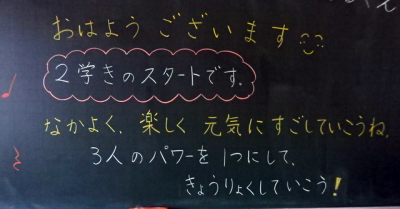 おはよう ございます
2学きのスタートです.
なかよく、楽しく 元気にすごしていこうね.
3人のパワーを 1つにして、
きょうりょくしていこう!